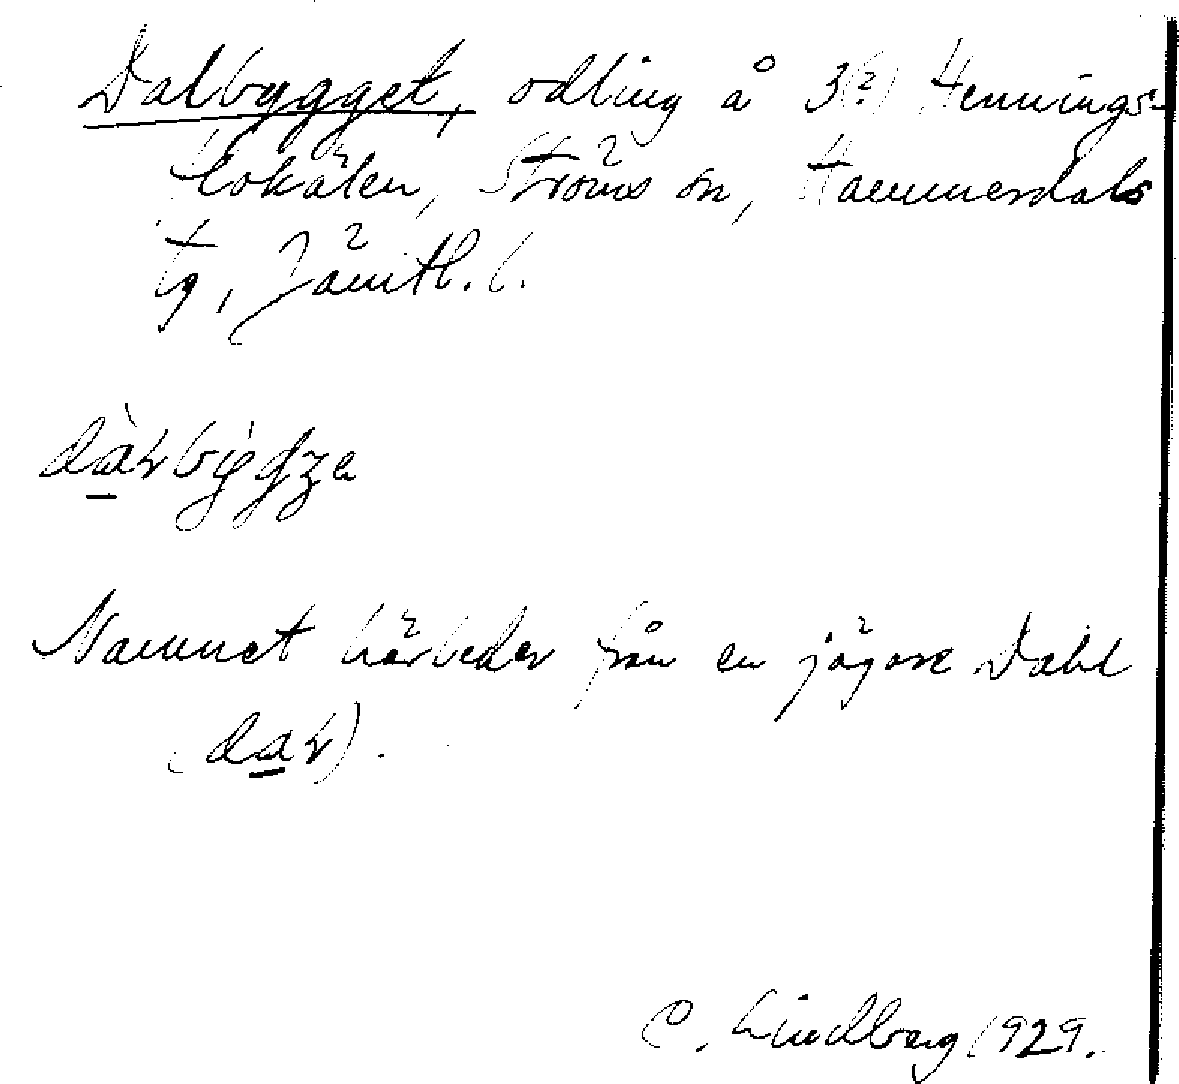 Dalbygget, odling å 3(?) Hennings-
tjokälen, Ströms sn, Hammerdals
tg, Jämtl. l.
Namnet härleder från en jägare Dahl
C. Lindberg 1929.